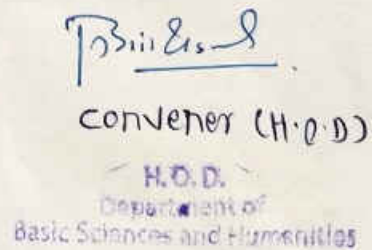 convener (H.O.D)
H.O.D.
Department of
Basic Sciences and Humanities